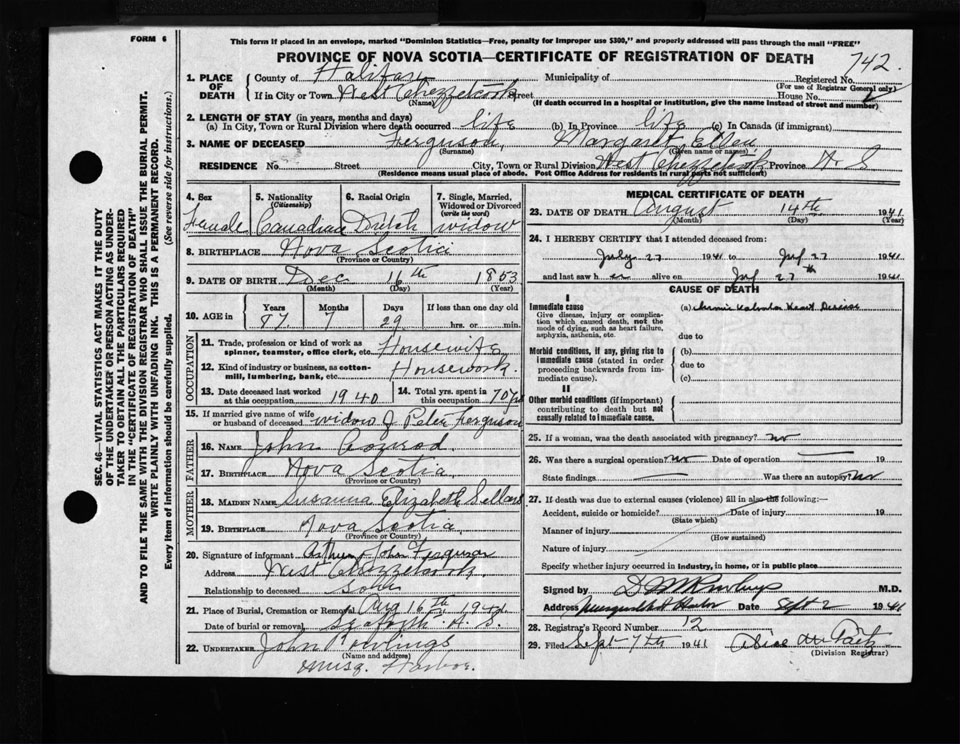 FORM 6
This form if placed in an envelope, marked "Dominion Statistics—Free, penalty for improper use $300," and properly addressed will pass through the mail "FREE"
PROVINCE OF NOVA SCOTIA—CERTIFICATE OF REGISTRATION OF DEATH
742.
1. PLACE OF DEATH
County of Halifax Municipality of Registered No.
(For use of Registrar General only)
If in City or Town West Chezzetcook Street House No.
(Name) (If death occurred in a hospital or institution, give the name instead of street and number)
2. LENGTH OF STAY (in years, months and days)
(a) In City, Town or Rural Division where death occurred life (b) In Province life (c) In Canada (if immigrant)
3. NAME OF DECEASED Ferguson, Margaret Ellen
(Surname) (Given name or names)
RESIDENCE No. Street City, Town or Rural Division West Chezzetcook Province N S
(Residence means usual place of abode. Post Office Address for residents in rural parts not sufficient)
4. Sex 5. Nationality (Citizenship) 6. Racial Origin 7. Single, Married, Widowed or Divorced (write the word)
Female Canadian Dutch widow
8. BIRTHPLACE Nova Scotia
(Province or Country)
9. DATE OF BIRTH Dec 16th 1853
(Month) (Day) (Year)
10. AGE in Years Months Days If less than one day old
87 7 29 hrs. or min.
OCCUPATION
11. Trade, profession or kind of work as spinner, teamster, office clerk, etc. Housewife
12. Kind of industry or business, as cotton-mill, lumbering, bank, etc. Housework.
13. Date deceased last worked at this occupation 1940 14. Total yrs. spent in this occupation 70 yrs
15. If married give name of wife or husband of deceased widow of Peter Ferguson
FATHER
16. NAME John Conrod
17. BIRTHPLACE Nova Scotia
(Province or Country)
MOTHER
18. MAIDEN NAME Susanna Elizabeth Sellars
19. BIRTHPLACE Nova Scotia
(Province or Country)
20. Signature of informant Arthur John Ferguson
Address West Chezzetcook
Relationship to deceased son
21. Place of Burial, Cremation or Removal Aug 16th 1941
Date of burial or removal Seaforth N. S.
22. UNDERTAKER John Rowlings
(Name and address)
Musq. Harbor.
MEDICAL CERTIFICATE OF DEATH
23. DATE OF DEATH August 14th 1941
(Month) (Day) (Year)
24. I HEREBY CERTIFY that I attended deceased from:
July 27 1941 to 27 1941
and last saw h er alive on 27th 1941
CAUSE OF DEATH
I
Immediate cause (a) Heart Disease
Give disease, injury or complication which caused death, not the mode of dying, such as heart failure, asphyxia, asthenia, etc.
due to
Morbid conditions, if any, giving rise to immediate cause (stated in order proceeding backwards from immediate cause).
(b)
due to
(c)
II
Other morbid conditions (if important) contributing to death but not causally related to immediate cause.
25. If a woman, was the death associated with pregnancy? no
26. Was there a surgical operation? no Date of operation 19
State findings Was there an autopsy? no
27. If death was due to external causes (violence) fill in also the following:—
Accident, suicide or homicide? Date of injury 19
(State which)
Manner of injury
(How sustained)
Nature of injury
Specify whether injury occurred in industry, in home, or in public place
Signed by D M Rowlings M.D.
Address Musquodoboit Harbor Date Sept 2 1941
28. Registrar's Record Number 12
29. Filed Sept 7th 1941
(Division Registrar)
SEC. 46—VITAL STATISTICS ACT MAKES IT THE DUTY
OF THE UNDERTAKER OR PERSON ACTING AS UNDER-
TAKER TO OBTAIN ALL THE PARTICULARS REQUIRED
IN THE "CERTIFICATE OF REGISTRATION OF DEATH"
AND TO FILE THE SAME WITH THE DIVISION REGISTRAR WHO SHALL ISSUE THE BURIAL PERMIT.
WRITE PLAINLY WITH UNFADING INK. THIS IS A PERMANENT RECORD.
Every item of information should be carefully supplied. (See reverse side for instructions.)